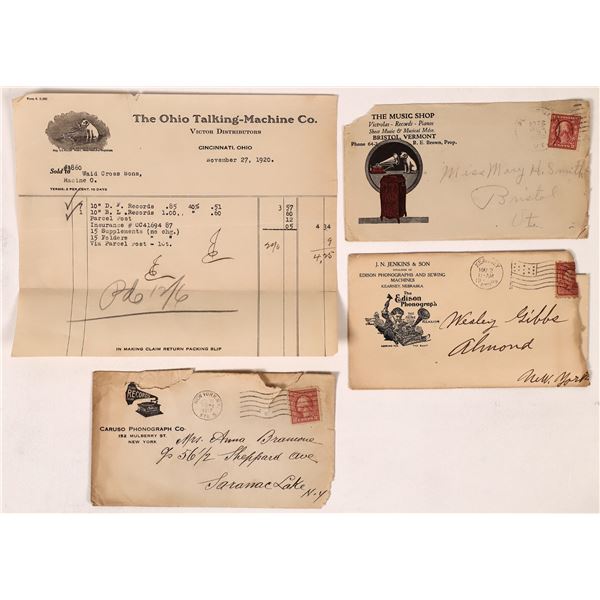 The Ohio Talking-Machine Co.
VICTOR DISTRIBUTORS
CINCINNATI, OHIO
November 27, 1920.
#3860
Sold to Waid Cross Sons,
Racine O.
TERMS: 2 PER CENT. 10 DAYS
7 10" D. F. Records .85 40% .51 3 57
1 10" B. L. Records 1.00 " .60 60
Parcel Post 12
Insurance # 0041694 87 05 4 34
15 Supplements (no chg.)
15 Folders "
Via Parcel Post - 1ot. 2% 9
4.25
Pd 12/6
IN MAKING CLAIM RETURN PACKING SLIP
THE MUSIC SHOP
Victrolas - Records - Pianos
Sheet Music & Musical Mdse.
BRISTOL, VERMONT
R. E. Brown, Prop.
Miss Mary H. Smith
Bristol
Vt.
J. N. JENKINS & SON
EDISON PHONOGRAPHS AND SEWING
MACHINES
KEARNEY, NEBRASKA
The
Edison
Phonograph
Wesley Gibbs
Almond
New York
RECORDS
CARUSO PHONOGRAPH CO.
152 MULBERRY ST.
NEW YORK
NEW YORK
Mrs. Anna Bramone
c/o 56 1/2 Sheppard Ave
Saranac Lake
N-Y